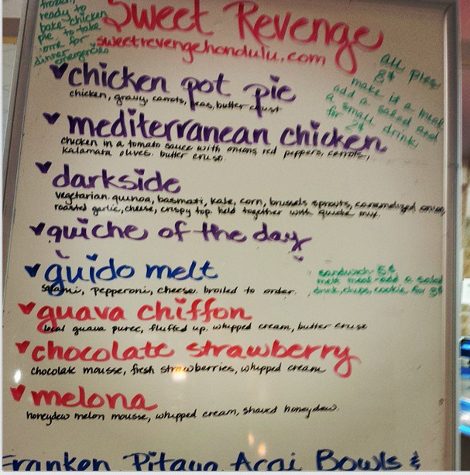 frozen
ready to
bake chicken
pie to take
home for
dinner
emergencies
Sweet Revenge
sweetrevengehonolulu.com
all pies
8$
make it a meal
add a salad and
a small drink
for 2$
chicken pot pie
chicken, gravy, carrots, peas, butter crust
mediterranean chicken
chicken in a tomato sauce with onions, red peppers, carrots,
kalamata olives. butter crust.
darkside
vegetarian. quinoa, basmati, kale, corn, brussels sprouts, caramelized onion,
roasted garlic, cheese, crispy top. held together with quiche mix.
quiche of the day
guido melt
salami, pepperoni, cheese. broiled to order.
sandwich 5$
melt meal add a salad
drink, chips, cookie for 3$
guava chiffon
local guava puree, fluffed up. whipped cream, butter crust
chocolate strawberry
chocolate mousse, fresh strawberries, whipped cream
melona
honeydew melon mousse, whipped cream, shaved honeydew.
Franken Pitaya Acai Bowls &